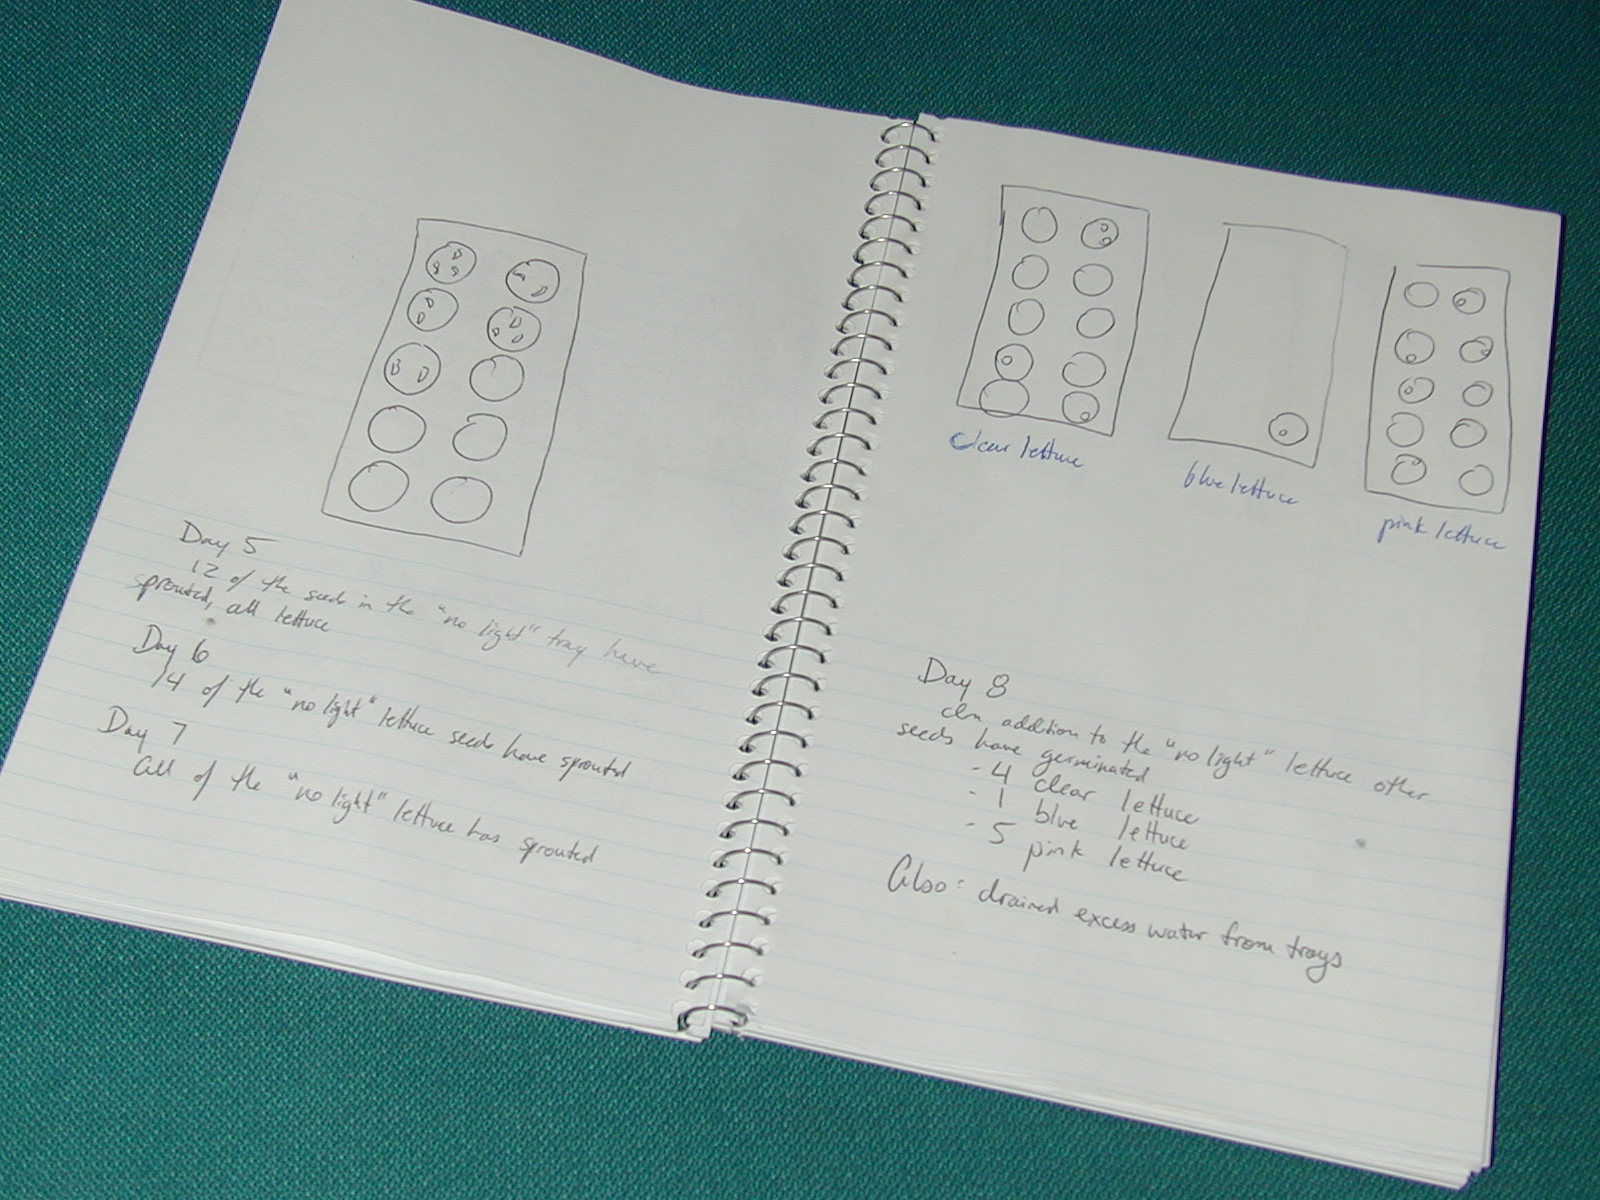 Day 5
12 of the seeds in the "no light" tray have
sprouted, all lettuce
Day 6
14 of the "no light" lettuce seeds have sprouted
Day 7
All of the "no light" lettuce has sprouted
clear lettuce
blue lettuce
pink lettuce
Day 8
In addition to the "no light" lettuce other
seeds have germinated
- 4 clear lettuce
- 1 blue lettuce
- 5 pink lettuce
Also: drained excess water from trays